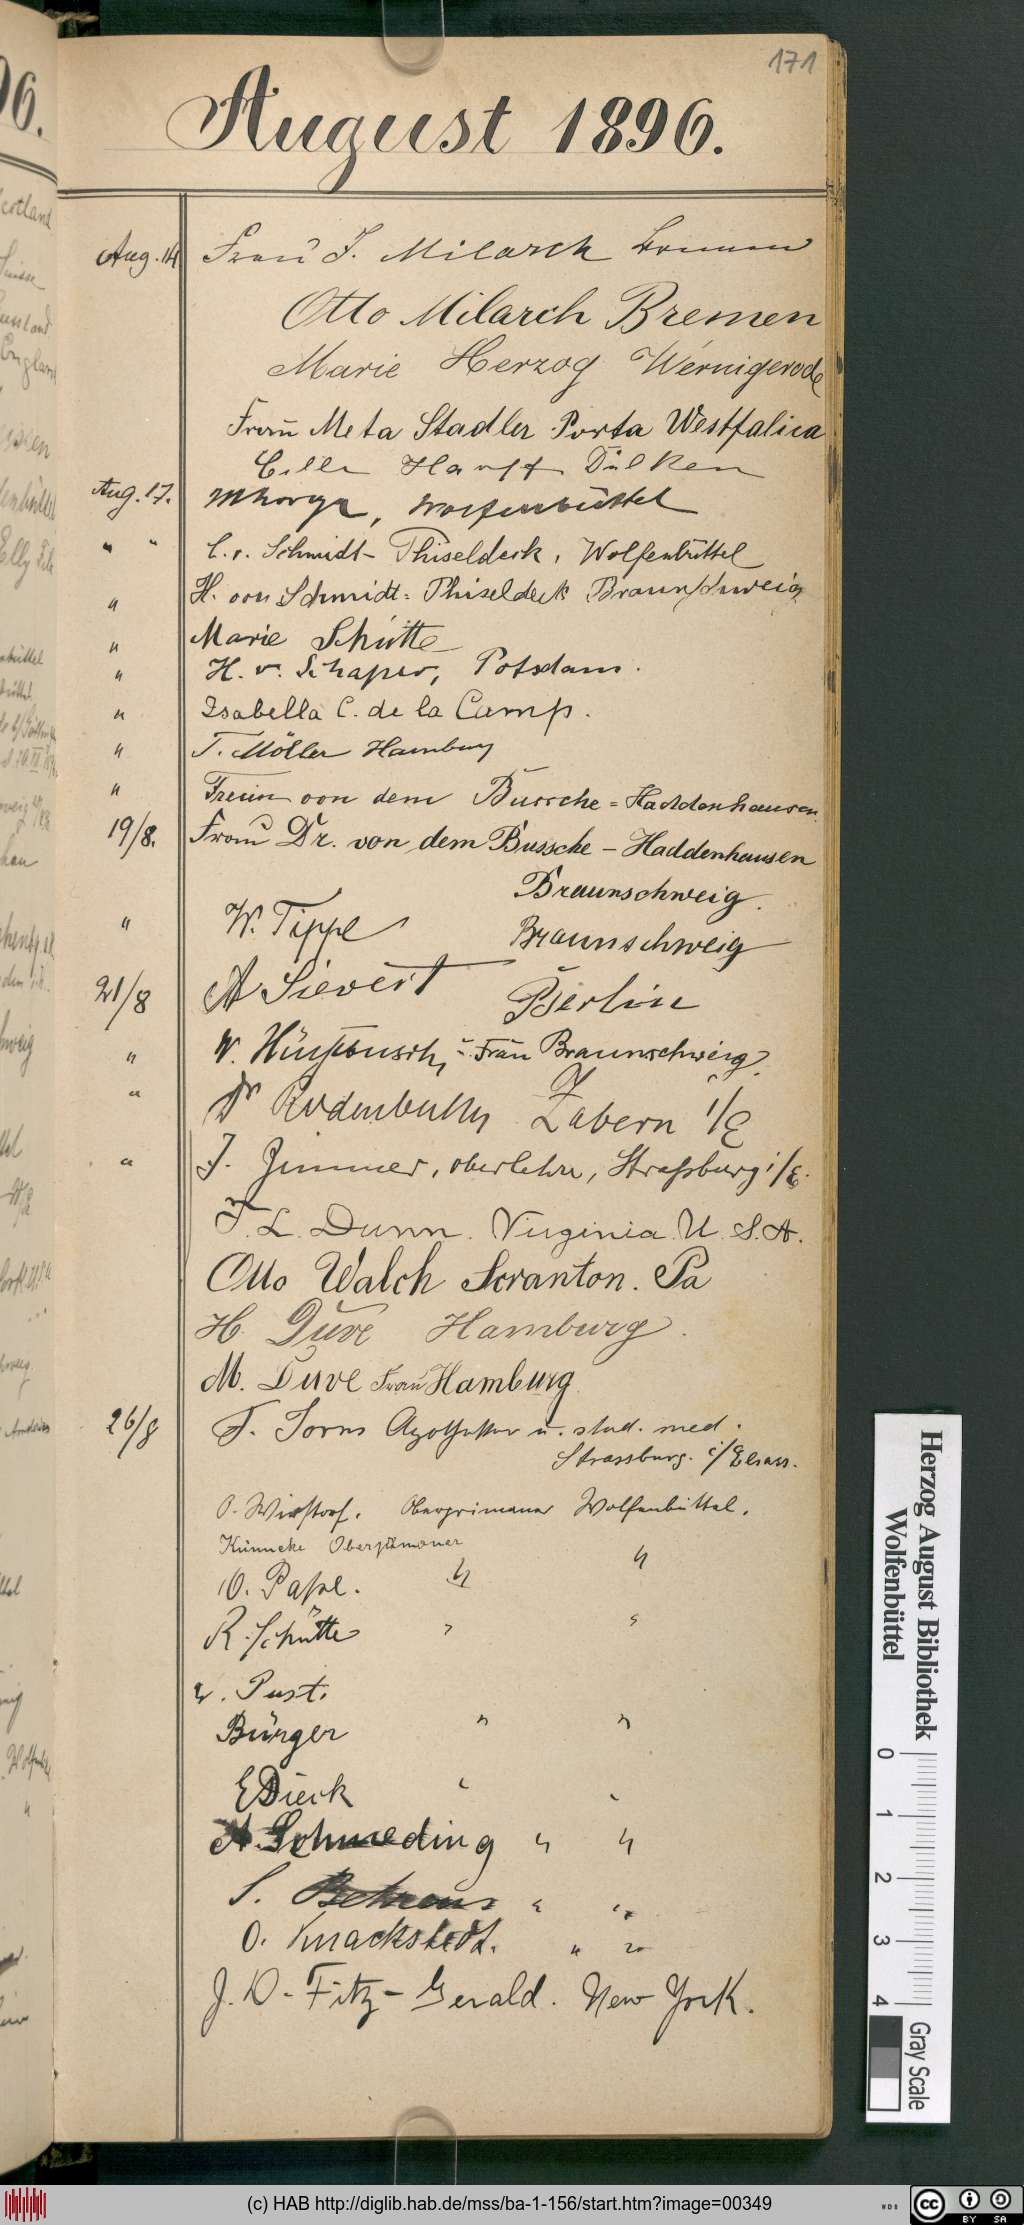 171
August 1896.
Aug. 14 Frau J. Milarch Bremen
Otto Milarch Bremen
Marie Herzog Wernigerode
Frau Meta Stadler Porta Westfalica
Dülken
Aug. 17. Wolfenbüttel
" " C. v. Schmidt-Phiseldeck, Wolfenbüttel
" H. von Schmidt-Phiseldeck Braunschweig
" Marie Schütte
" H. v. Schaper, Potsdam.
" Isabella C. de la Camp.
" T. Möller Hamburg
" Freiin von dem Bussche-Haddenhausen
19/8. Frau Dr. von dem Bussche-Haddenhausen
Braunschweig.
" W. Tippe Braunschweig
21/8 A Sievert Berlin
" W. u. Frau Braunschweig.
" Dr Zabern i/E
" J. Zimmer, Oberlehrer, Straßburg i/E.
F. L. Dunn. Virginia. U. S. A.
Otto Walch Scranton. Pa
H. Duve Hamburg.
M. Duve Frau Hamburg
26/8 F. Sorns Apotheker u. stud. med.
Strassburg. i/Elsass.
O. Oberprimaner Wolfenbüttel.
Künneke Oberprimaner "
O. Pape. "
R. Schütte " "
Pust.
Bürger " "
E Dieck " "
A. Schmeding " "
S. Behrens " "
O. Knackstedt. " "
J. D. Fitz-Gerald. New York.
Herzog August Bibliothek
Wolfenbüttel
0 1 2 3 4
Gray Scale
(c) HAB http://diglib.hab.de/mss/ba-1-156/start.htm?image=00349
WDB
cc BY SA